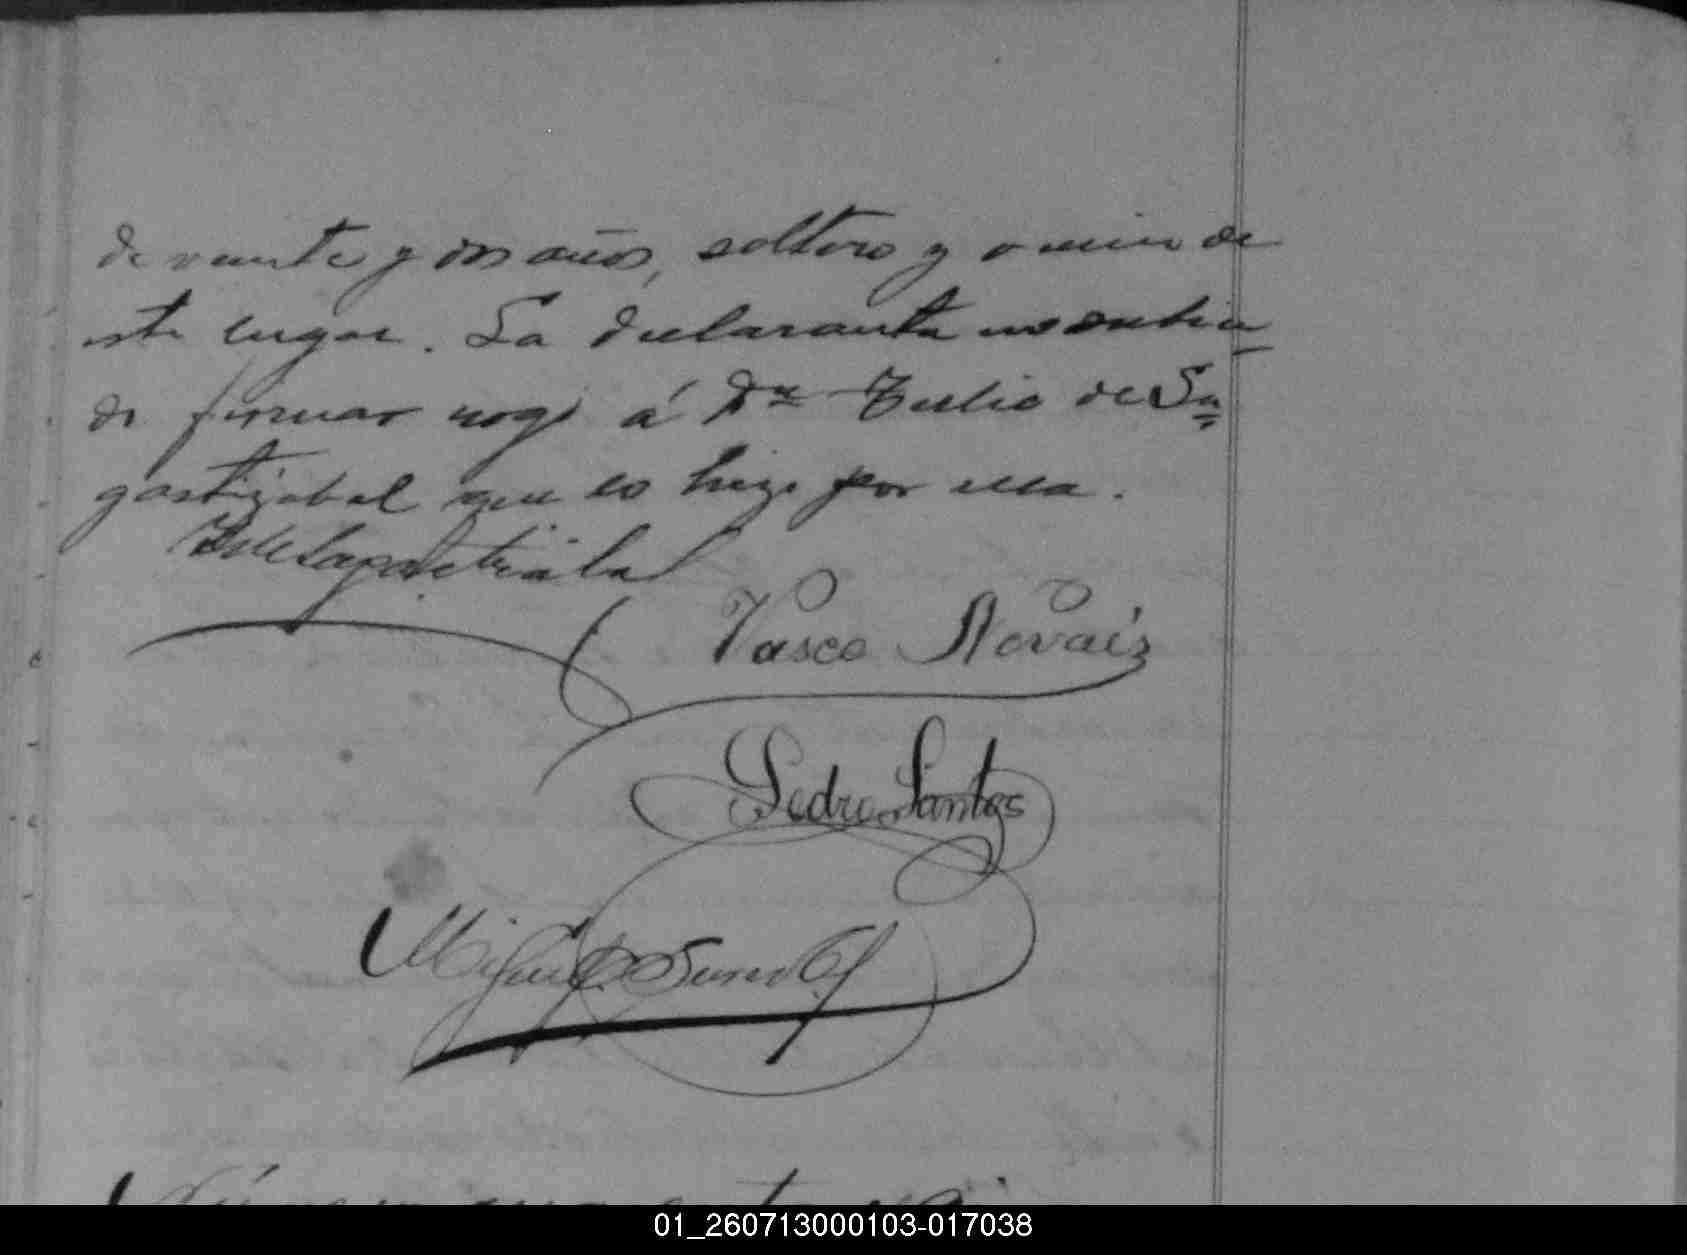 de veinte y dos años, soltero y vecino de
este lugar. La declaranta no sabien
do firmar rogó á Dn Tulio de Sa=
gastizabal que lo hizo por ella.
Vasco Novaiz
Pedro Santos
01_260713000103-017038